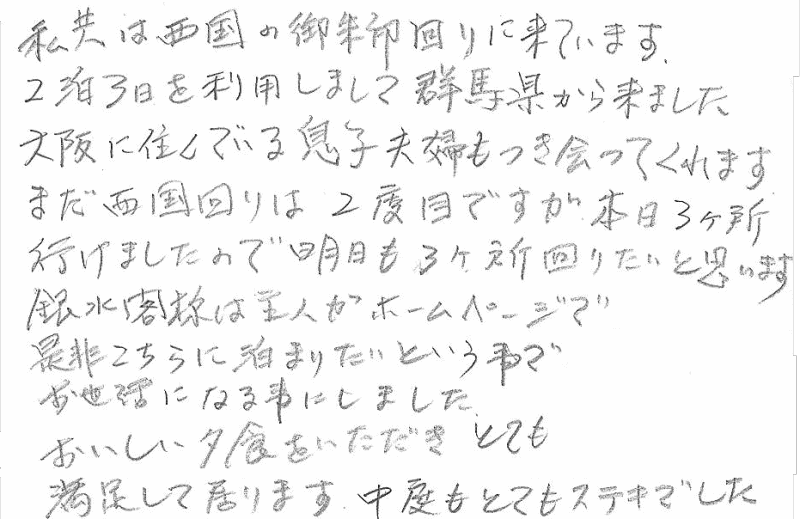 私共は西国の御朱印回りに来ています.
2泊3日を利用しまして群馬県から来ました
大阪に住んでいる息子夫婦もつき会ってくれます
まだ西国回りは2度目ですが本日3ケ所
行けましたので明日も3ケ所回りたいと思います
銀水閣様は主人がホームページで
是非こちらに泊まりたいという事で
お世話になる事にしました
おいしい夕食をいただき とても
満足して居ります.中庭もとてもステキでした